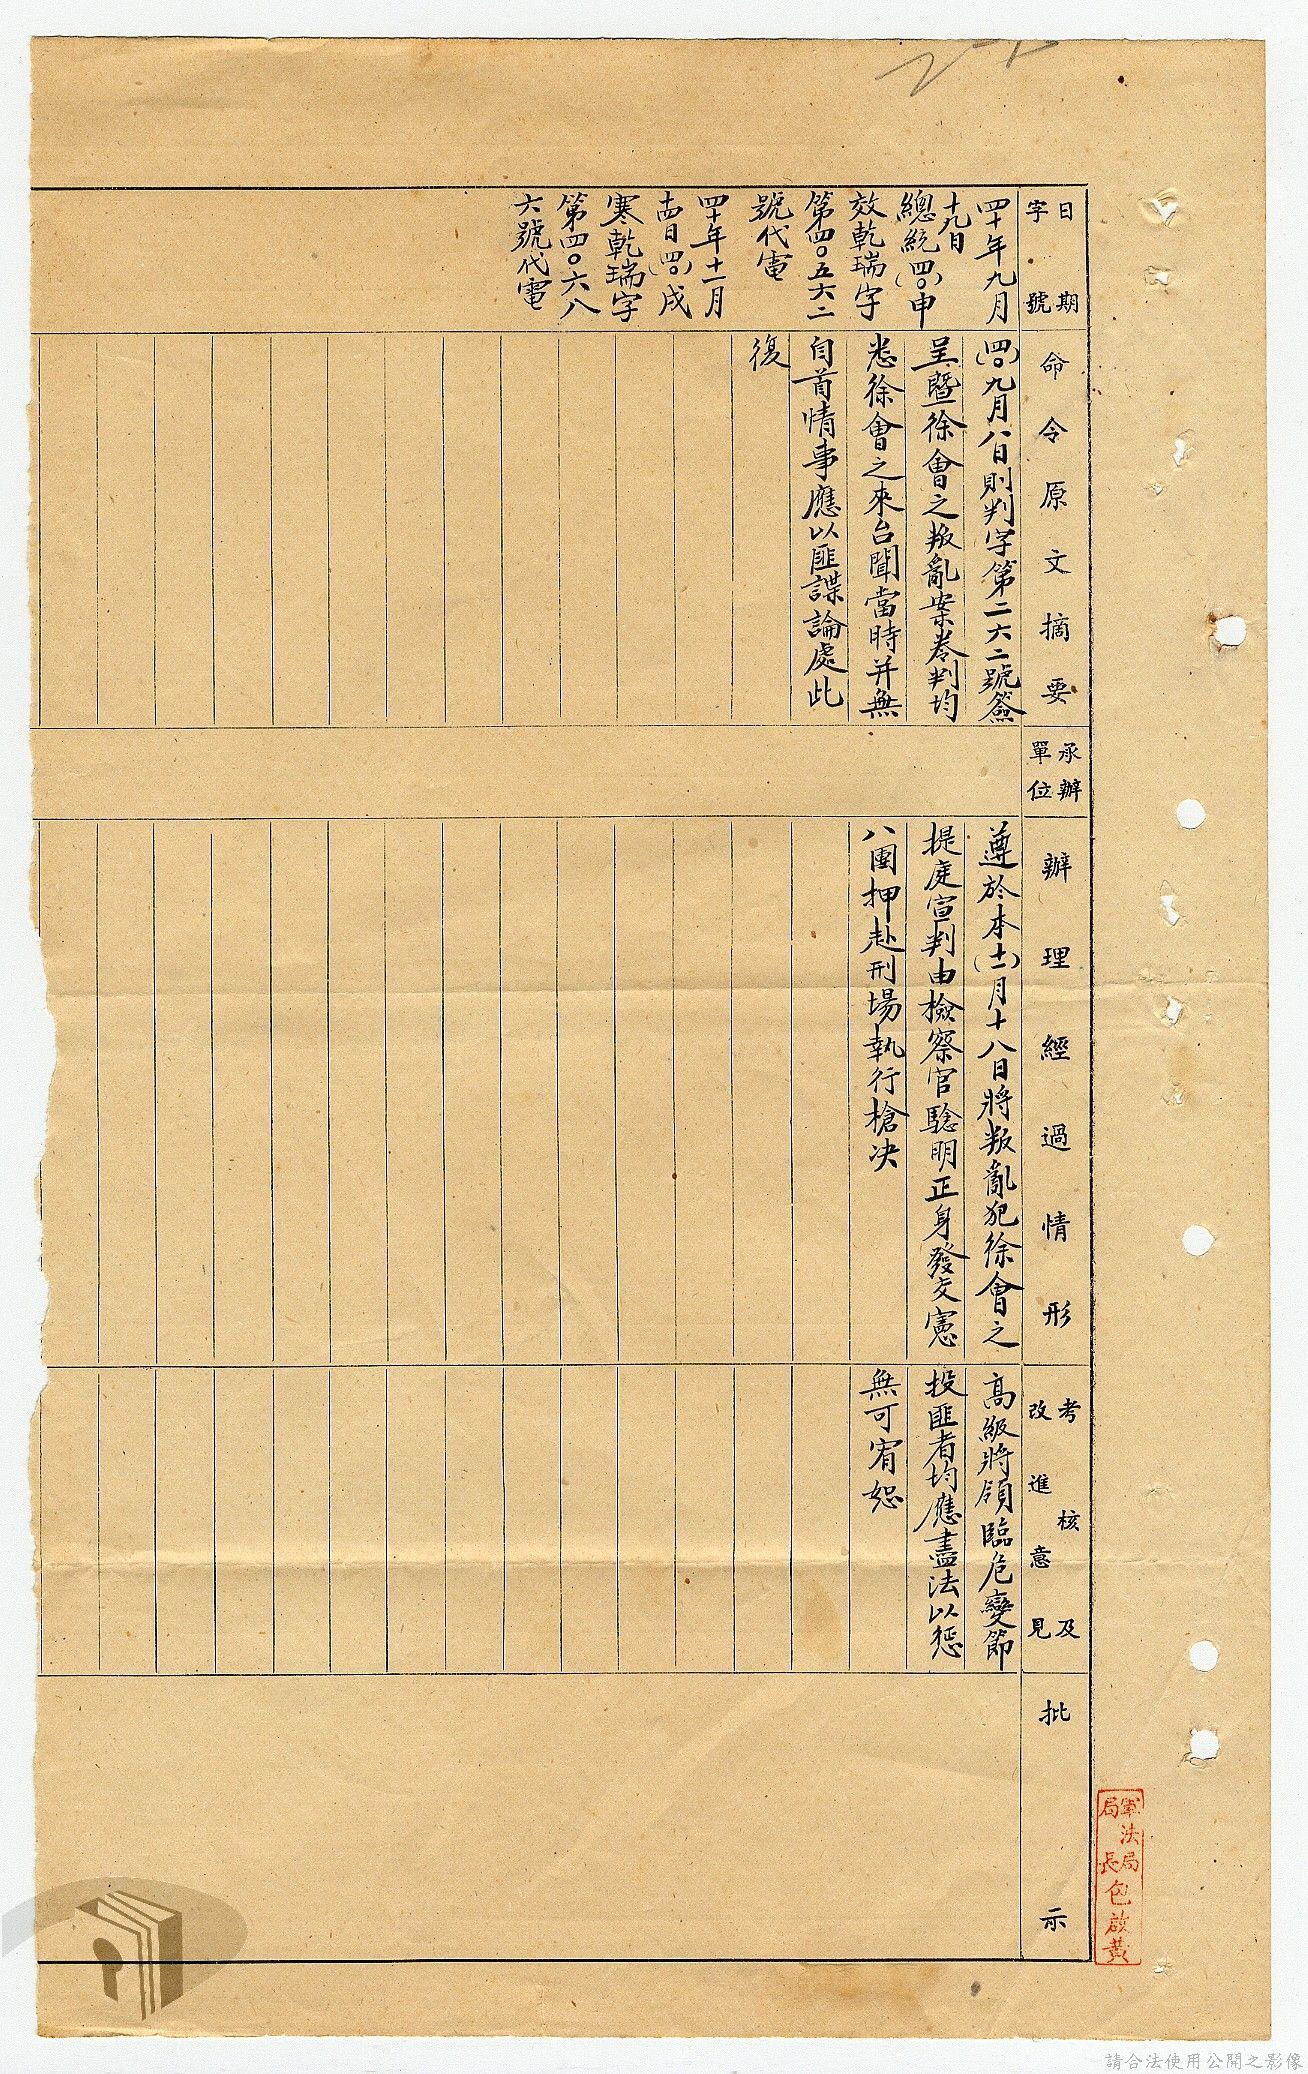 日期
字號
四十年九月
十九日
總統(四○)申
效乾瑞字
第四○五六二
號代電
四十年十一月
十四日(四○)戌
寒乾瑞字
第四○六八
六號代電
命令原文摘要
(四○)九月八日則判字第二六二號簽
呈暨徐會之叛亂案卷判均
悉徐會之來台聞當時并無
自首情事應以匪諜論處此
復
承辦
單位
辦理經過情形
遵於本(十一)月十八日將叛亂犯徐會之
提庭宣判由檢察官驗明正身發交憲
八團押赴刑場執行槍决
考核及
改進意見
高級將領臨危變節
投匪者均應盡法以懲
無可宥恕
批示
軍法局
局長包啟黃
請合法使用公開之影像